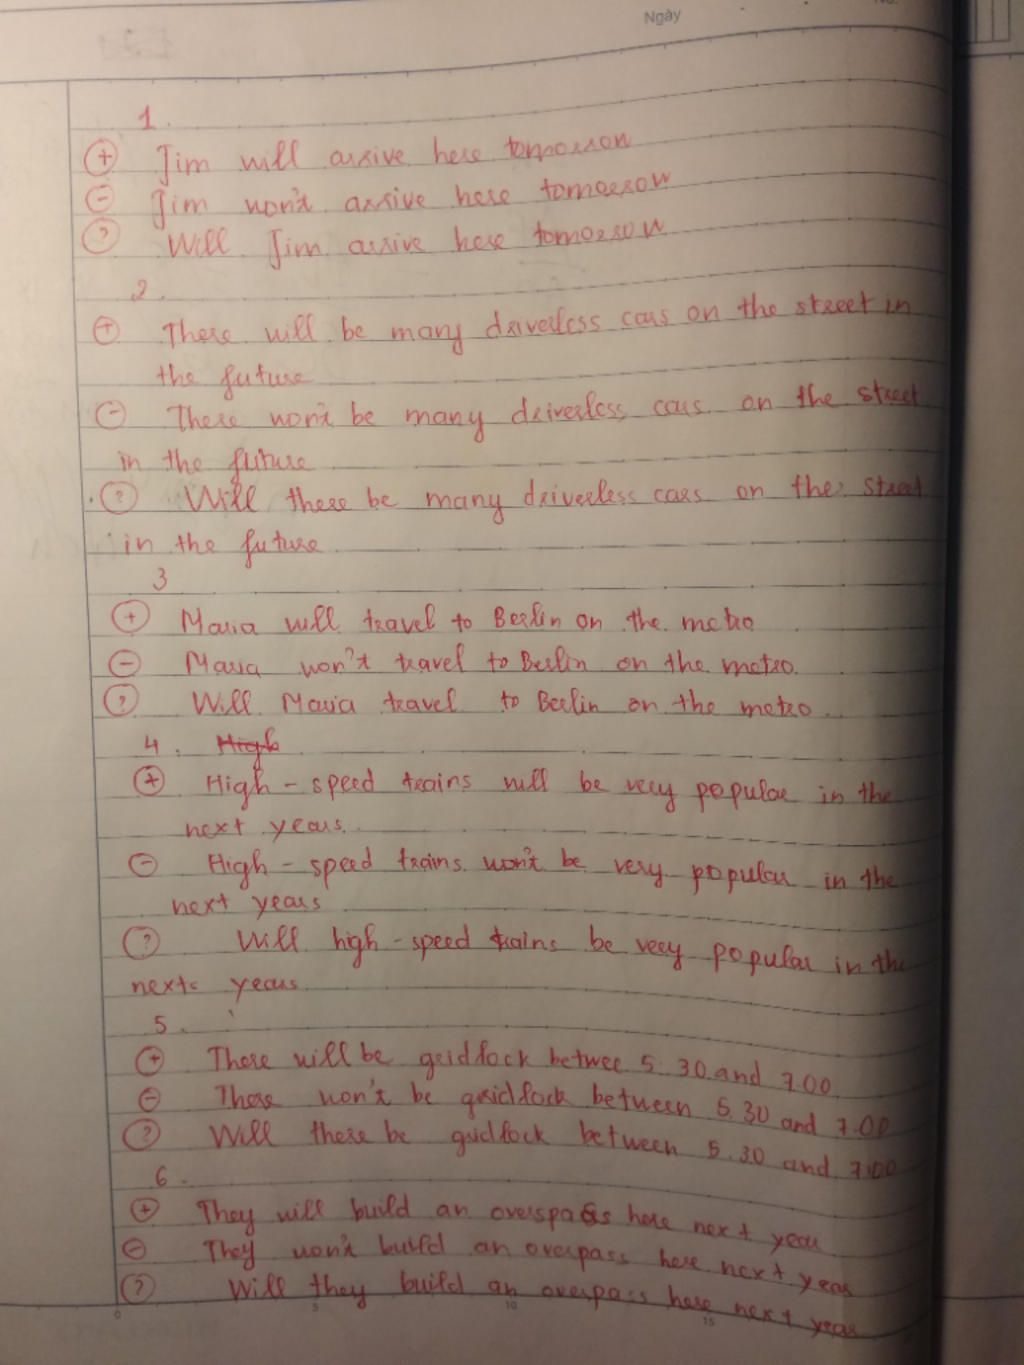 Ngày
No.
1.
+ Jim will arrive here tomorrow
- Jim won't arrive here tomorrow
? Will Jim arrive here tomorrow
2.
+ There will be many driverless cars on the street in
the future
- There won't be many driverless cars on the street
in the future
? Will there be many driverless cars on the street
in the future
3
+ Maria will travel to Berlin on the metro
- Maria won't travel to Berlin on the metro.
? Will Maria travel to Berlin on the metro
4. High
+ High-speed trains will be very popular in the
next years.
- High-speed trains won't be very popular in the
next years
? Will high-speed trains be very popular in the
next years
5.
+ There will be gridlock betwee 5.30 and 7.00
- There won't be gridlock between 5.30 and 7.00
? Will there be gridlock between 5.30 and 7.00
6.
+ They will build an overspass here next year
- They won't build an overpass here next year
? Will they build an overpass here next year
0 5 10 15